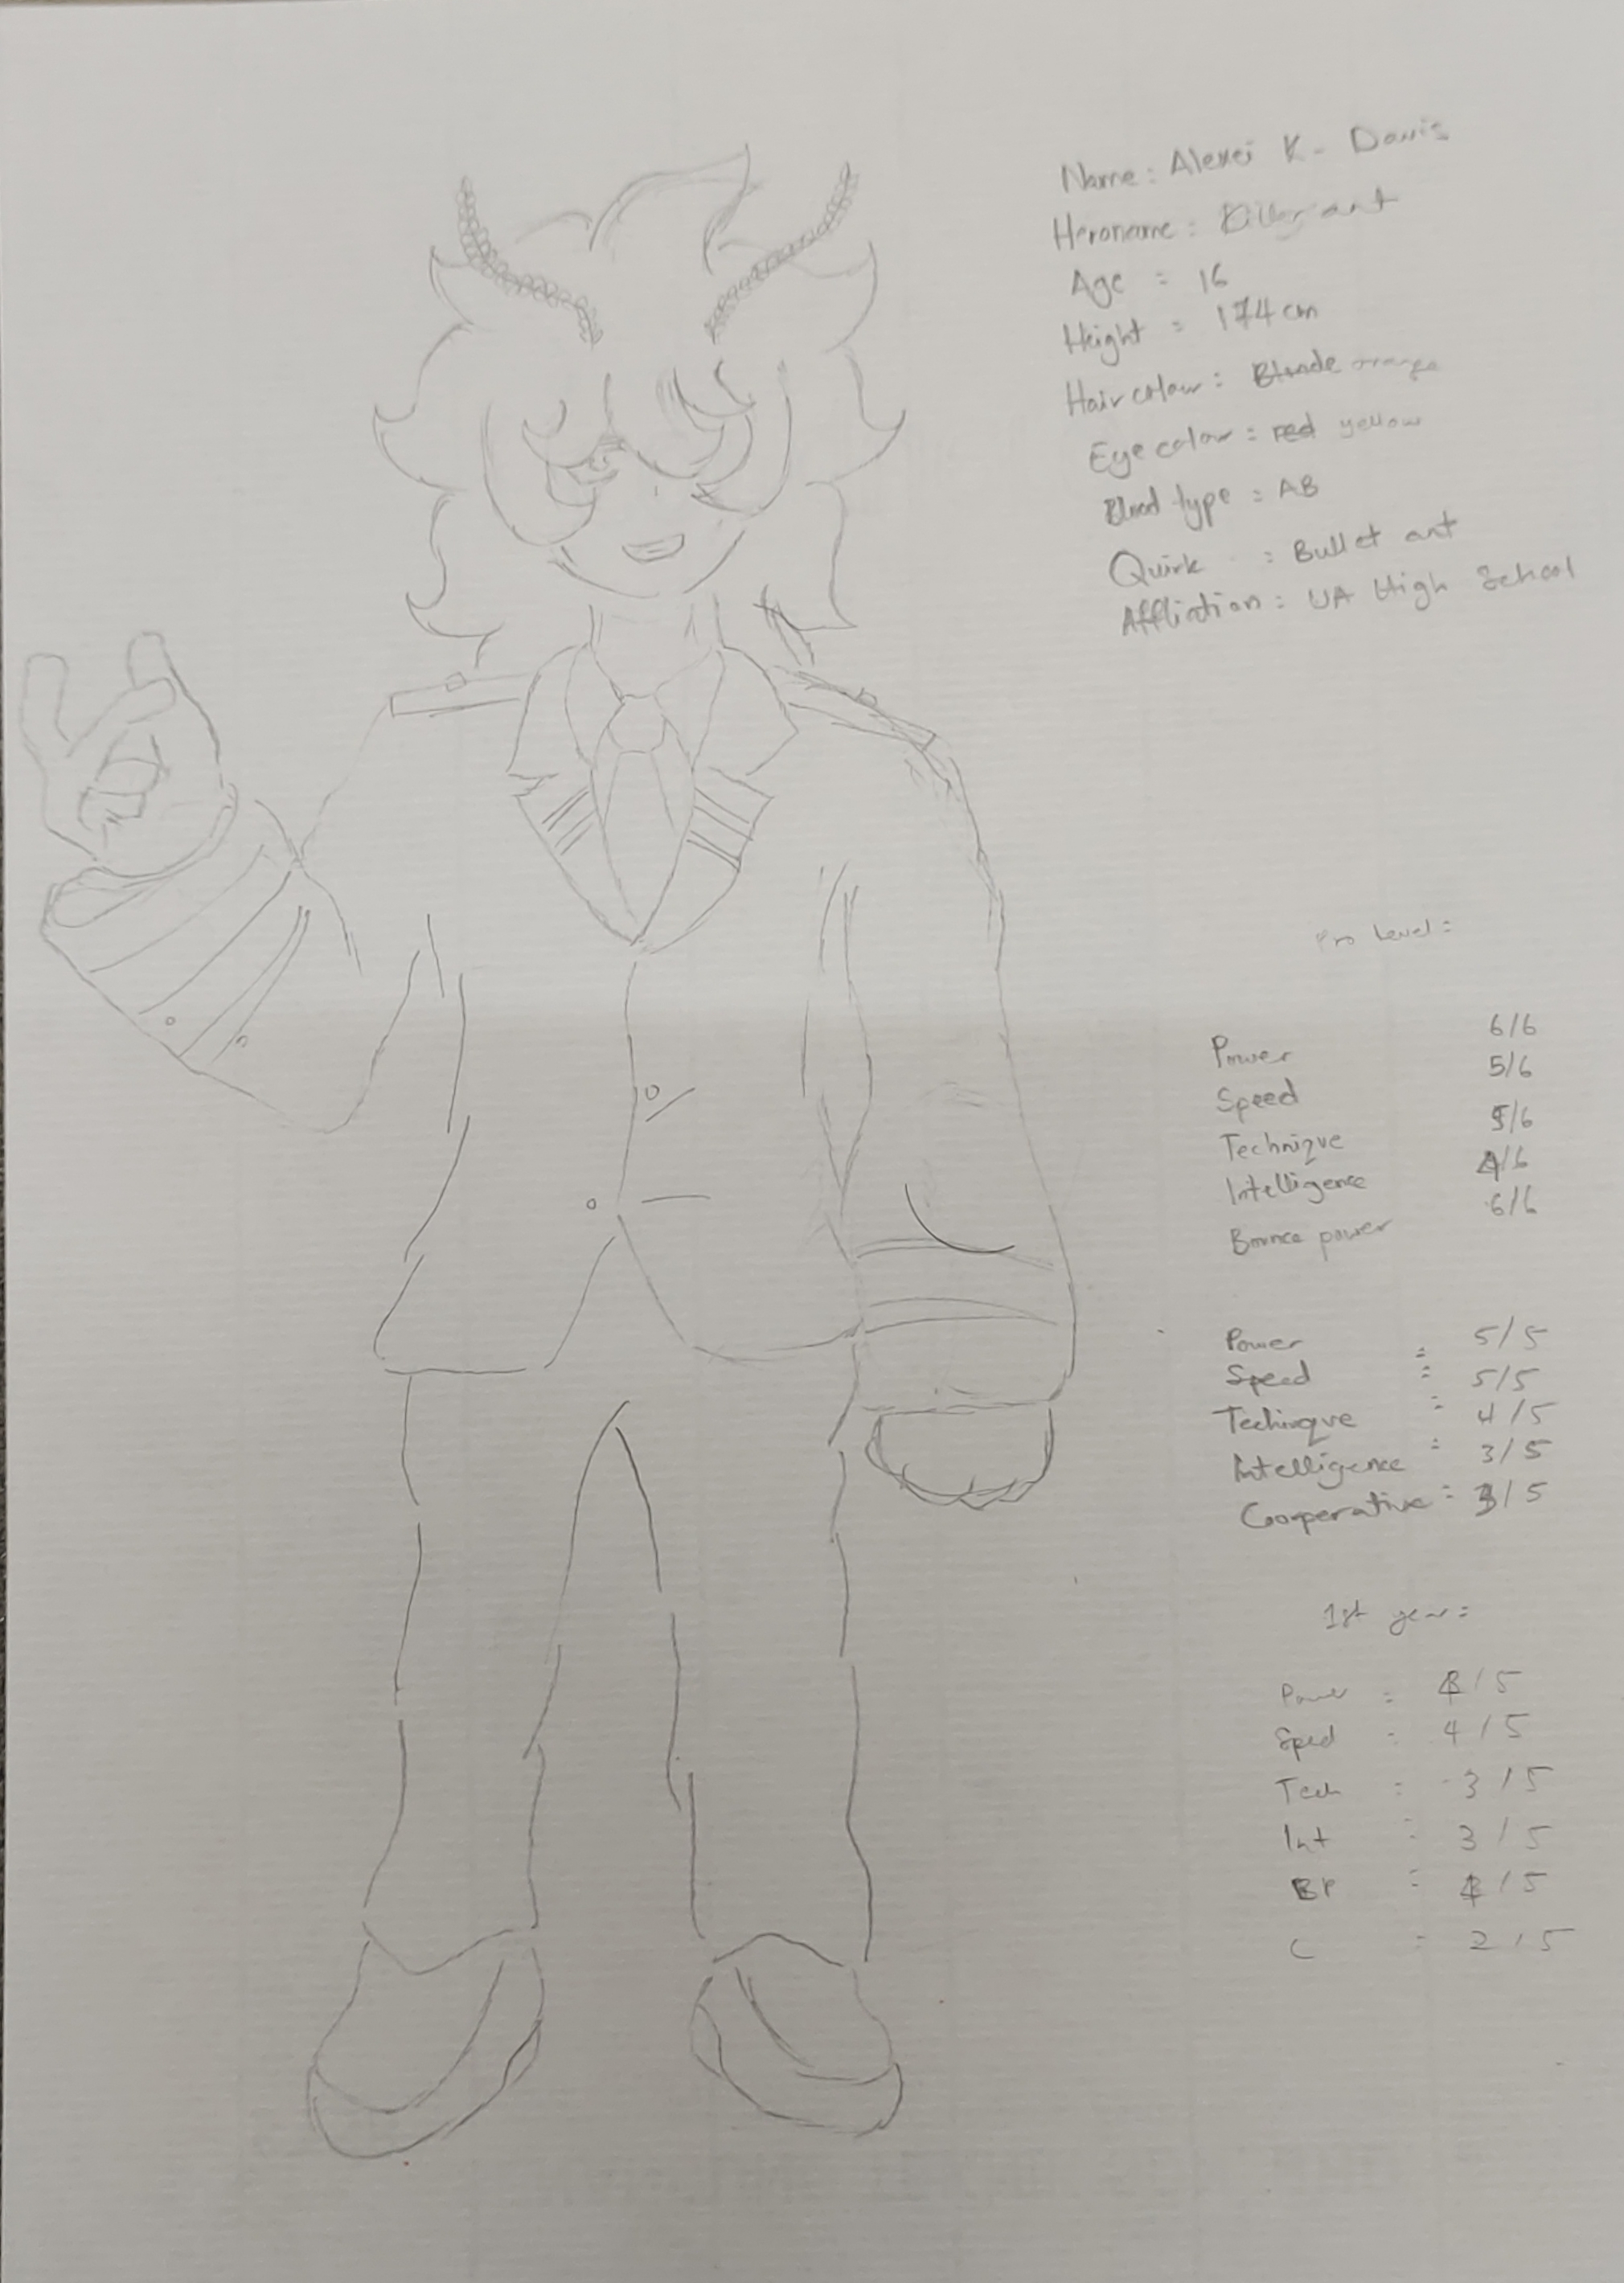 Name: Alexei K. Davis
Heroname:
Age : 16
Height : 174 cm
Hair colour: Blonde orange
Eye colour: red yellow
Blood type : AB
Quirk : Bullet ant
Affliction: UA High School
Pro Level:
Power 6/6
Speed 5/6
Technique 5/6
Intelligence 4/6
Bounce power 6/6
Power : 5/5
Speed : 5/5
Techinqve : 4/5
Intelligence : 3/5
Cooperative: 3/5
1st year:
Power : 4/5
Sped : 4/5
Tech : 3/5
Int : 3/5
BP : 4/5
C : 2/5